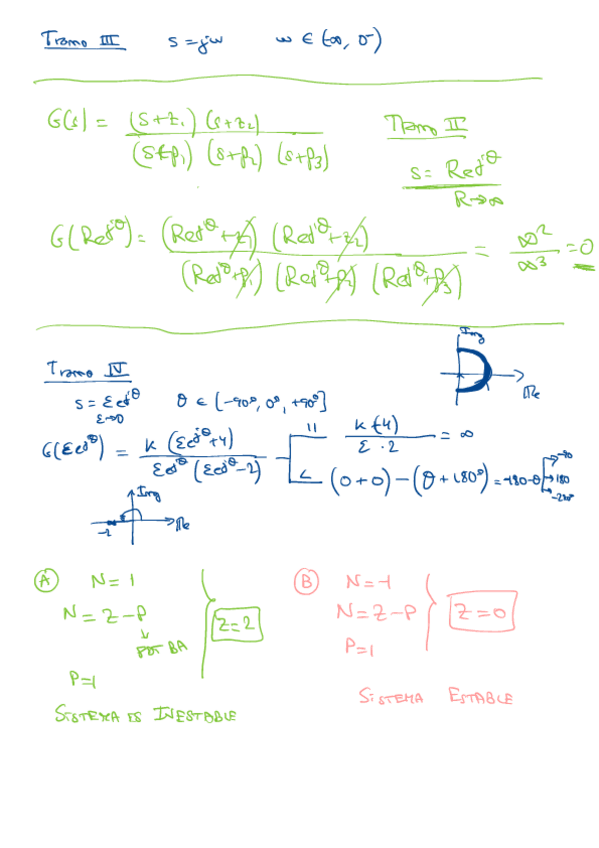 Tramo III s = jω ω ∈ (-∞, 0⁻)
G(s) = (s+z₁) (s+z₂) / (s+p₁) (s+p₂) (s+p₃)
Tramo II
s = Re^jθ
R→∞
G(Re^jθ) = (Re^jθ+z₁) (Re^jθ+z₂) / (Re^jθ+p₁) (Re^jθ+p₂) (Re^jθ+p₃) = ∞² / ∞³ = 0
Img
Re
Tramo IV
s = εe^jθ θ ∈ [-90°, 0°, +90°]
ε→0
G(εe^jθ) = K (εe^jθ+4) / εe^jθ (εe^jθ-2)
|| K (4) / ε · 2 = ∞
∠ (0+0) - (θ + 180°) = -180-θ
-90
180
-270
Img
-2
Re
A N = 1
N = Z - P
PDI BA
Z = 2
P = 1
SISTEMA ES INESTABLE
B N = -1
N = Z - P
P = 1
Z = 0
SISTEMA ESTABLE